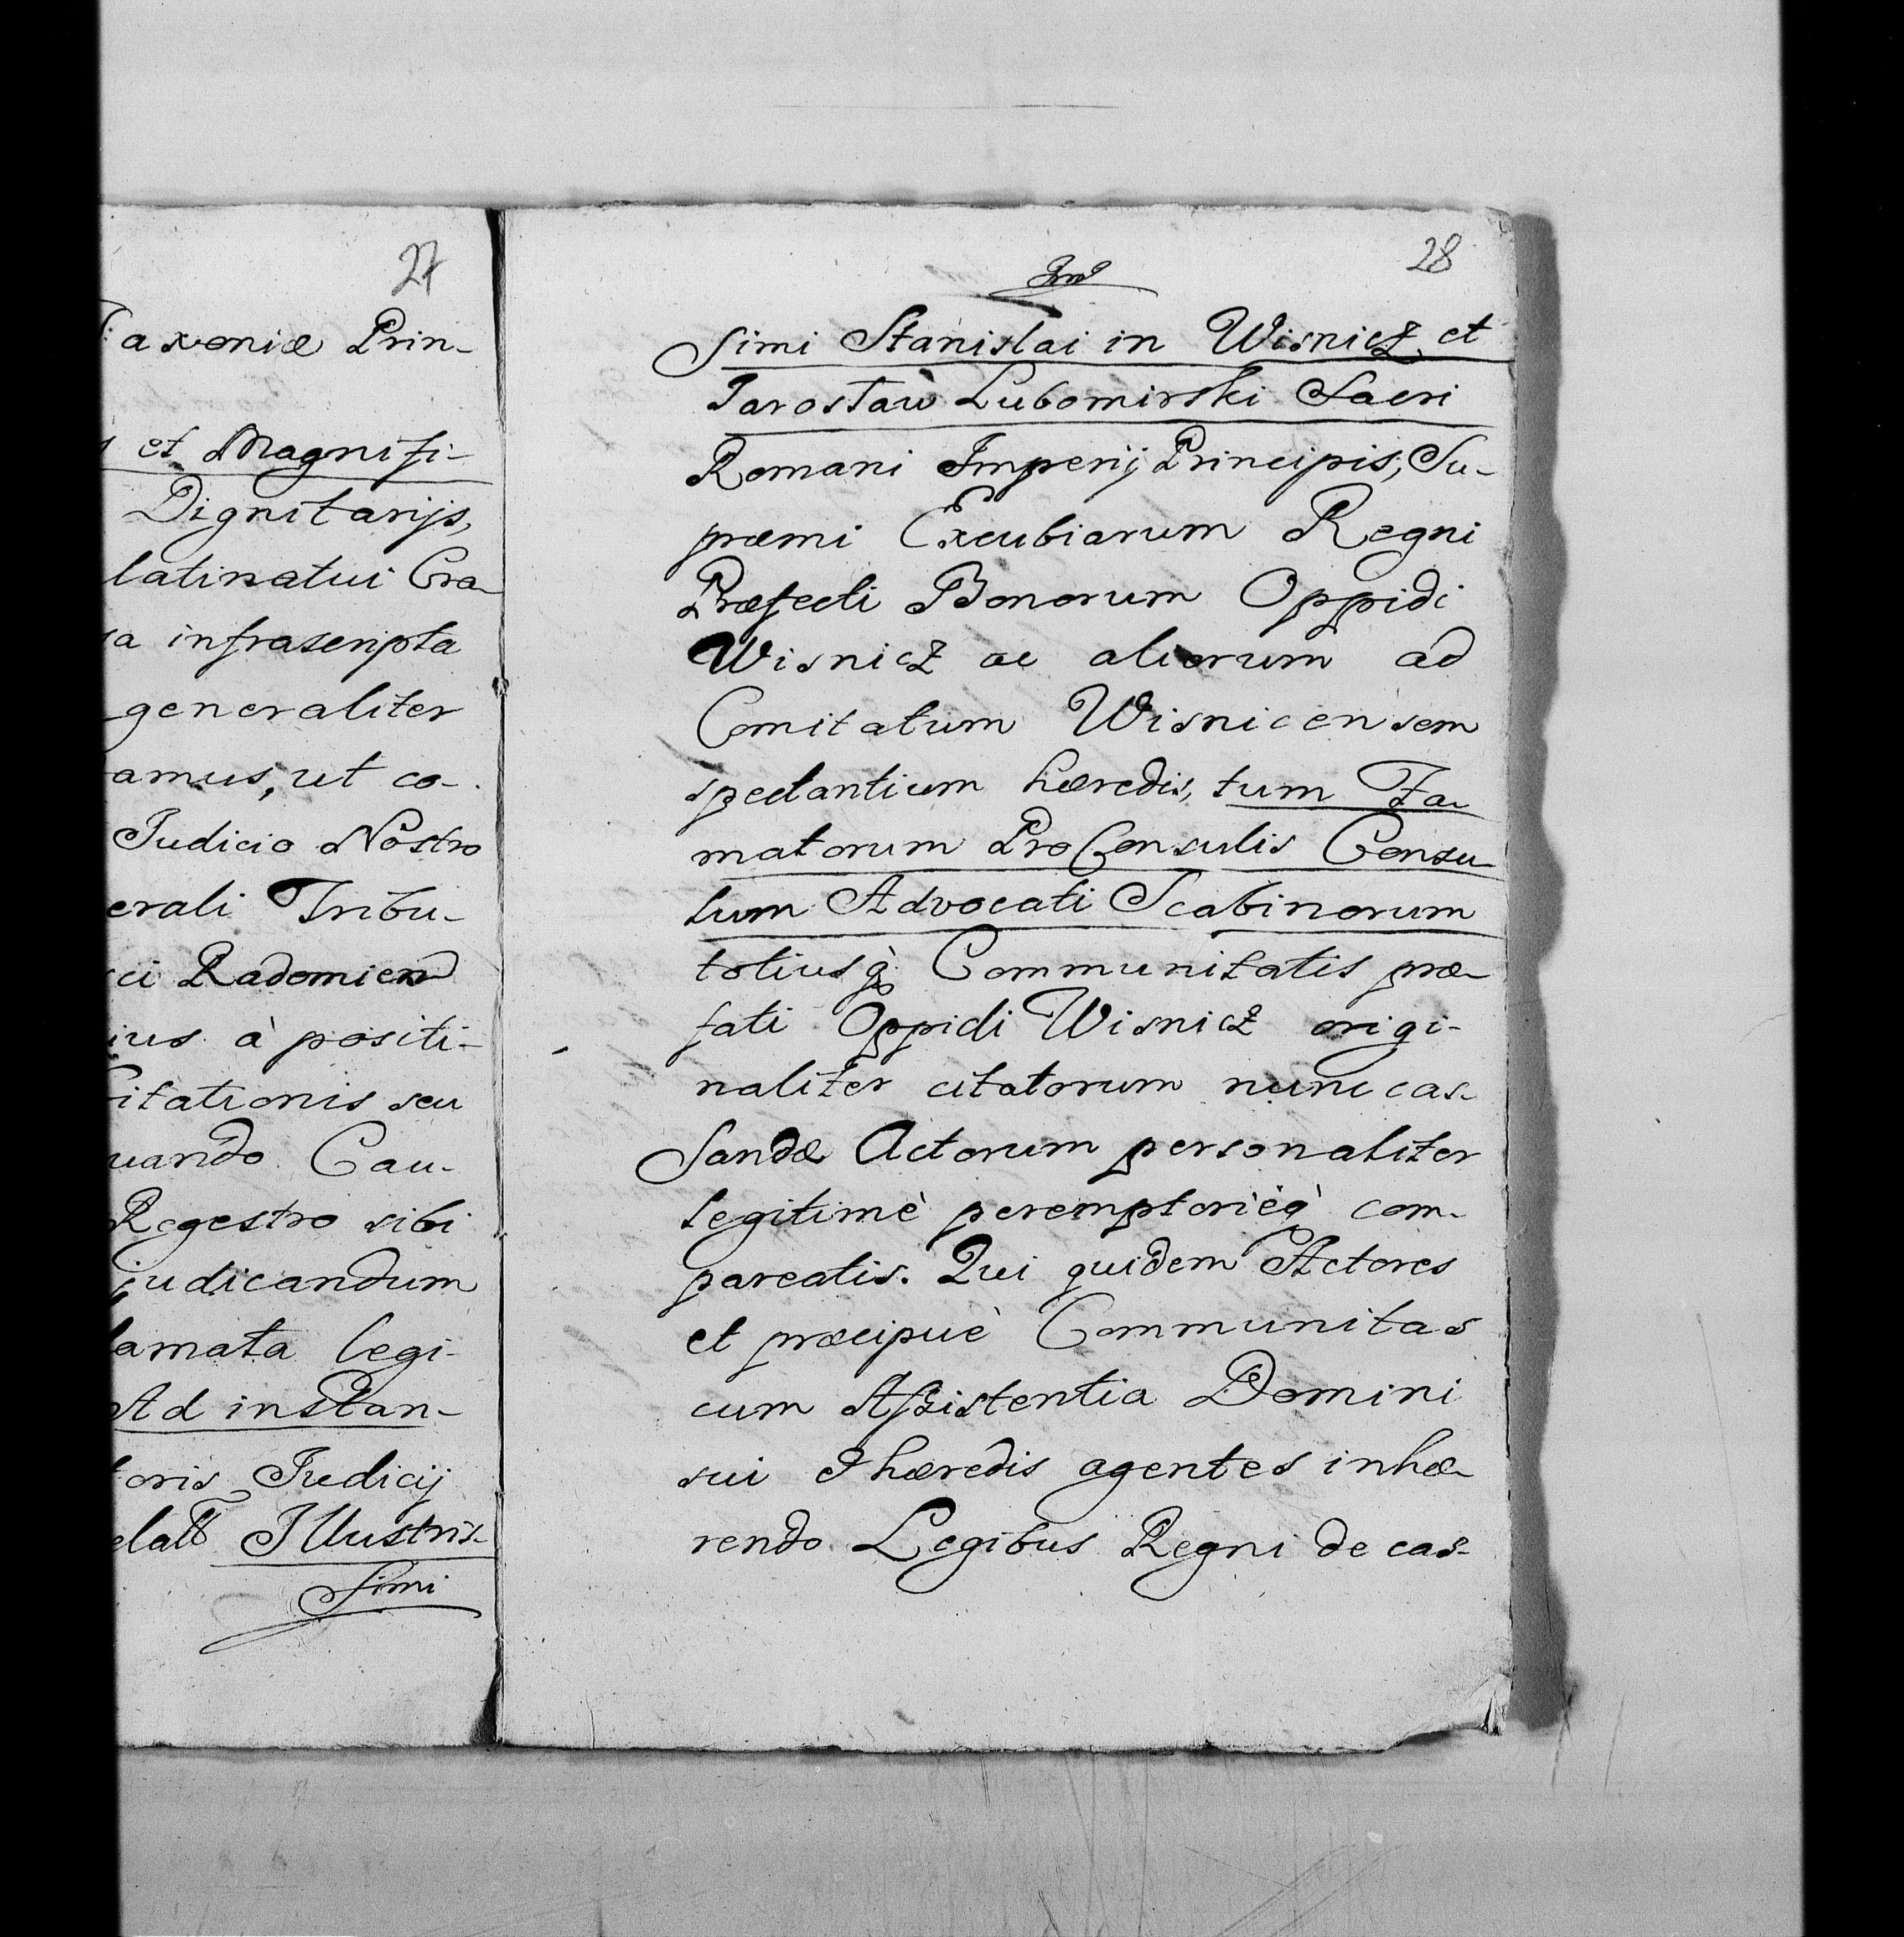 27
axoniæ Prin-
et Magnifi-
Dignitarijs,
latinatui Cra-
a infrascripta
generaliter
amus, ut co-
Judicio Nostro
erali Tribu-
ci Radomien
ius à positi-
itationis seu
uando Cau-
Regestro sibi
judicandum
lamata legi-
Ad instan-
oris Judicij
Illustris-
simi
28
simi Stanislai in Wisnicz et
Jarosław Lubomirski Sacri
Romani Imperij Principis, Su-
præmi Excubiarum Regni
Præfecti Bonorum Oppidi
Wisnicz ac aliorum ad
Comitatum Wisnicensem
spectantium hæredis, tum Fa-
matorum ProConsulis Consu-
lum Advocati Scabinorum
totiusq̀ Communitatis præ-
fati Oppidi Wisnicz origi-
naliter citatorum nunc cas-
sandæ Actorum personaliter
legitimè peremptorièq̀ com-
pareatis. Qui quidem Actores
et præcipuè Communitas
cum Assistentia Domini
sui hæredis agentes inhæ-
rendo Legibus Regni de cas-